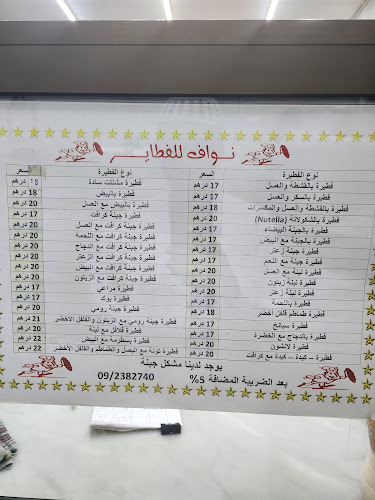 نواف للفطاير
نوع الفطيرة السعر
فطيرة بالقشطة والعسل 17 درهم
فطيرة بالسكر والعسل 17 درهم
فطيرة بالقشطة والعسل والمكسرات 18 درهم
فطيرة بالشكولاتة (Nutella) 20 درهم
فطيرة بالجبنة البيضاء 17 درهم
فطيرة بالجبنة مع البيض
فطيرة جبنة زعتر
فطيرة جبنة مع اللحم
فطيرة لبنة مع العسل
فطيرة لبنة زيتون
فطيرة لبنة زعتر
فطيرة باللحمة
فطيرة طماطم فلفل أخضر
فطيرة سبانخ
فطيرة بالدجاج مع الخضرة
فطيرة لانشون
فطيرة – كبدة – كبدة مع كرافت 20 درهم
نوع الفطيرة السعر
فطيرة مشلتت سادة 18 درهم
فطيرة بالبيض 18 درهم
فطيرة بالبيض مع العسل 20 درهم
فطيرة جبنة كرافت 17 درهم
فطيرة جبنة كرافت مع العسل 20 درهم
فطيرة جبنة كرافت مع اللحمة 20 درهم
فطيرة جبنة كرافت مع الدجاج 20 درهم
فطيرة جبنة كرافت مع الزعتر
فطيرة جبنة كرافت مع البيض
فطيرة جبنة كرافت مع الزيتون
فطيرة مراعي 17 درهم
فطيرة بوك 17 درهم
فطيرة جبنة رومي
فطيرة جبنة رومي مع الزيتون والفلفل الاخضر 21 درهم
فطيرة فلافل مع لبنة 20 درهم
فطيرة بسطرمة مع البيض 22 درهم
فطيرة تونة مع البصل والطماطم والفلفل الأخضر 22 درهم
يوجد لدينا مشكل جبنة
بعد الضريبة المضافة 5% 09/2382740